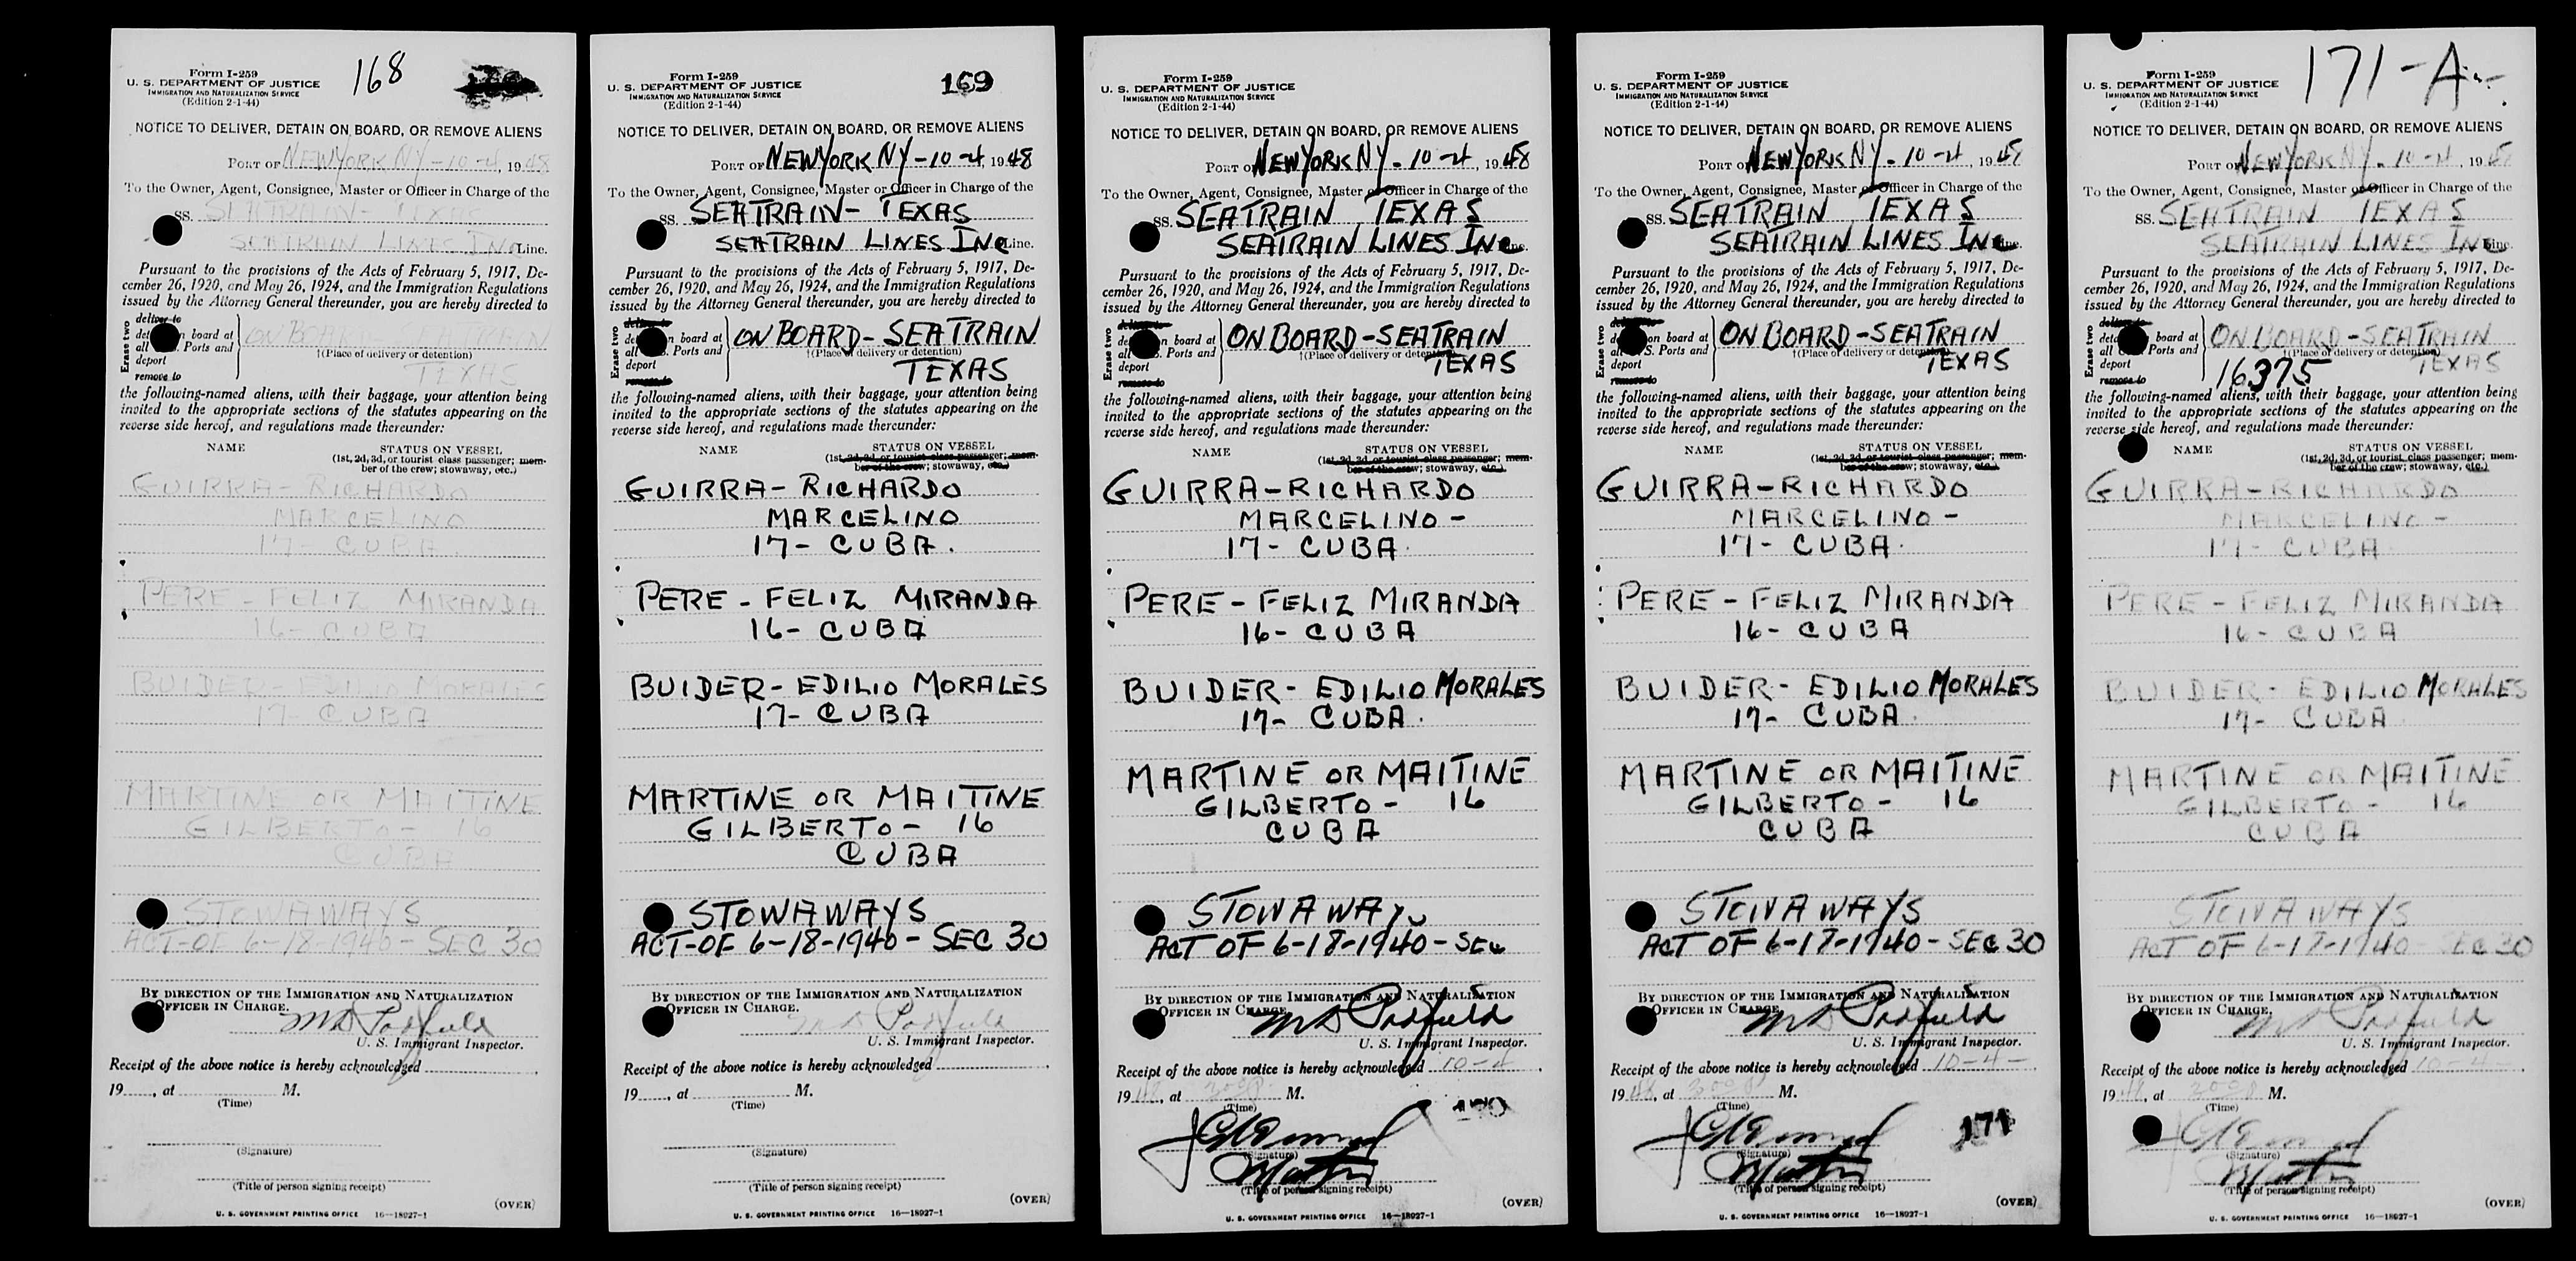 Form I-259
168
U. S. DEPARTMENT OF JUSTICE
IMMIGRATION AND NATURALIZATION SERVICE
(Edition 2-1-44)
NOTICE TO DELIVER, DETAIN ON BOARD, OR REMOVE ALIENS
PORT OF NEW YORK NY - 10-4, 1948
To the Owner, Agent, Consignee, Master or Officer in Charge of the
SS. SEATRAIN - TEXAS
SEATRAIN LINES INC Line.
Pursuant to the provisions of the Acts of February 5, 1917, De-
cember 26, 1920, and May 26, 1924, and the Immigration Regulations
issued by the Attorney General thereunder, you are hereby directed to
Erase two
deliver to
board at
all Ports and
deport
remove to
ON BOARD - SEATRAIN
†(Place of delivery or detention)
TEXAS
the following-named aliens, with their baggage, your attention being
invited to the appropriate sections of the statutes appearing on the
reverse side hereof, and regulations made thereunder:
NAME STATUS ON VESSEL
(1st, 2d, 3d, or tourist class passenger; mem-
ber of the crew; stowaway, etc.)
GUIRRA - RICHARDO
MARCELINO
17 - CUBA.
PERE - FELIZ MIRANDA
16 - CUBA
BUIDER - EDILIO MORALES
17 - CUBA
MARTINE OR MAITINE
GILBERTO - 16
CUBA
STOWAWAYS
ACT-OF 6-18-1940 - SEC 30
BY DIRECTION OF THE IMMIGRATION AND NATURALIZATION
OFFICER IN CHARGE.
U. S. Immigrant Inspector.
Receipt of the above notice is hereby acknowledged
19, at M.
(Time)
(Signature)
(Title of person signing receipt)
(OVER)
U. S. GOVERNMENT PRINTING OFFICE 16—18027-1
Form I-259
169
U. S. DEPARTMENT OF JUSTICE
IMMIGRATION AND NATURALIZATION SERVICE
(Edition 2-1-44)
NOTICE TO DELIVER, DETAIN ON BOARD, OR REMOVE ALIENS
PORT OF NEW YORK NY - 10-4, 1948
To the Owner, Agent, Consignee, Master or Officer in Charge of the
SS. SEATRAIN - TEXAS
SEATRAIN LINES INC Line.
Pursuant to the provisions of the Acts of February 5, 1917, De-
cember 26, 1920, and May 26, 1924, and the Immigration Regulations
issued by the Attorney General thereunder, you are hereby directed to
Erase two
board at
all Ports and
deport
remove to
ON BOARD - SEATRAIN
†(Place of delivery or detention)
TEXAS
the following-named aliens, with their baggage, your attention being
invited to the appropriate sections of the statutes appearing on the
reverse side hereof, and regulations made thereunder:
NAME STATUS ON VESSEL
(1st, 2d, 3d, or tourist class passenger; mem-
ber of the crew; stowaway, etc.)
GUIRRA - RICHARDO
MARCELINO
17 - CUBA.
PERE - FELIZ MIRANDA
16 - CUBA
BUIDER - EDILIO MORALES
17 - CUBA
MARTINE OR MAITINE
GILBERTO - 16
CUBA
STOWAWAYS
ACT-OF 6-18-1940 - SEC 30
BY DIRECTION OF THE IMMIGRATION AND NATURALIZATION
OFFICER IN CHARGE.
U. S. Immigrant Inspector.
Receipt of the above notice is hereby acknowledged
19, at M.
(Time)
(Signature)
(Title of person signing receipt)
(OVER)
U. S. GOVERNMENT PRINTING OFFICE 16—18027-1
Form I-259
U. S. DEPARTMENT OF JUSTICE
IMMIGRATION AND NATURALIZATION SERVICE
(Edition 2-1-44)
NOTICE TO DELIVER, DETAIN ON BOARD, OR REMOVE ALIENS
PORT OF NEW YORK NY. 10-4, 1948
To the Owner, Agent, Consignee, Master or Officer in Charge of the
SS. SEATRAIN TEXAS
SEATRAIN LINES INC Line.
Pursuant to the provisions of the Acts of February 5, 1917, De-
cember 26, 1920, and May 26, 1924, and the Immigration Regulations
issued by the Attorney General thereunder, you are hereby directed to
Erase two
board at
all S. Ports and
deport
remove to
ON BOARD - SEATRAIN
†(Place of delivery or detention)
TEXAS
the following-named aliens, with their baggage, your attention being
invited to the appropriate sections of the statutes appearing on the
reverse side hereof, and regulations made thereunder:
NAME STATUS ON VESSEL
(1st, 2d, 3d, or tourist class passenger; mem-
ber of the crew; stowaway, etc.)
GUIRRA - RICHARDO
MARCELINO -
17 - CUBA.
PERE - FELIZ MIRANDA
16 - CUBA
BUIDER - EDILIO MORALES
17 - CUBA.
MARTINE OR MAITINE
GILBERTO - 16
CUBA
STOWAWAYS
ACT OF 6-18-1940 - SEC
BY DIRECTION OF THE IMMIGRATION AND NATURALIZATION
OFFICER IN CHARGE.
U. S. Immigrant Inspector.
Receipt of the above notice is hereby acknowledged 10-4
1948, at M.
(Time)
170
(Signature)
(Title of person signing receipt)
(OVER)
U. S. GOVERNMENT PRINTING OFFICE 16—18027-1
Form I-259
U. S. DEPARTMENT OF JUSTICE
IMMIGRATION AND NATURALIZATION SERVICE
(Edition 2-1-44)
NOTICE TO DELIVER, DETAIN ON BOARD, OR REMOVE ALIENS
PORT OF NEW YORK NY. 10-4, 1948
To the Owner, Agent, Consignee, Master or Officer in Charge of the
SS. SEATRAIN TEXAS
SEATRAIN LINES INC Line.
Pursuant to the provisions of the Acts of February 5, 1917, De-
cember 26, 1920, and May 26, 1924, and the Immigration Regulations
issued by the Attorney General thereunder, you are hereby directed to
Erase two
on board at
all S. Ports and
deport
remove to
ON BOARD - SEATRAIN
†(Place of delivery or detention)
TEXAS
the following-named aliens, with their baggage, your attention being
invited to the appropriate sections of the statutes appearing on the
reverse side hereof, and regulations made thereunder:
NAME STATUS ON VESSEL
(1st, 2d, 3d, or tourist class passenger; mem-
ber of the crew; stowaway, etc.)
GUIRRA - RICHARDO
MARCELINO -
17 - CUBA.
PERE - FELIZ MIRANDA
16 - CUBA
BUIDER - EDILIO MORALES
17 - CUBA.
MARTINE OR MAITINE
GILBERTO - 16
CUBA
STOWAWAYS
ACT OF 6-18-1940 - SEC 30
BY DIRECTION OF THE IMMIGRATION AND NATURALIZATION
OFFICER IN CHARGE.
U. S. Immigrant Inspector.
Receipt of the above notice is hereby acknowledged 10-4-
1948, at M.
(Time)
171
(Signature)
(Title of person signing receipt)
(OVER)
U. S. GOVERNMENT PRINTING OFFICE 16—18027-1
Form I-259
171-A
U. S. DEPARTMENT OF JUSTICE
IMMIGRATION AND NATURALIZATION SERVICE
(Edition 2-1-44)
NOTICE TO DELIVER, DETAIN ON BOARD, OR REMOVE ALIENS
PORT OF NEW YORK NY. 10-4, 1948
To the Owner, Agent, Consignee, Master or Officer in Charge of the
SS. SEATRAIN TEXAS
SEATRAIN LINES INC Line.
Pursuant to the provisions of the Acts of February 5, 1917, De-
cember 26, 1920, and May 26, 1924, and the Immigration Regulations
issued by the Attorney General thereunder, you are hereby directed to
Erase two
board at
all Ports and
deport
remove to
ON BOARD - SEATRAIN
†(Place of delivery or detention)
TEXAS
16375
the following-named aliens, with their baggage, your attention being
invited to the appropriate sections of the statutes appearing on the
reverse side hereof, and regulations made thereunder:
NAME STATUS ON VESSEL
(1st, 2d, 3d, or tourist class passenger; mem-
ber of the crew; stowaway, etc.)
GUIRRA - RICHARDO
MARCELINO -
17 - CUBA
PERE - FELIZ MIRANDA
16 - CUBA
BUIDER - EDILIO MORALES
17 - CUBA
MARTINE OR MAITINE
GILBERTO - 16
CUBA
STOWAWAYS
ACT OF 6-18-1940 SEC 30
BY DIRECTION OF THE IMMIGRATION AND NATURALIZATION
OFFICER IN CHARGE.
U. S. Immigrant Inspector.
Receipt of the above notice is hereby acknowledged 10-4-
1948, at M.
(Time)
(Signature)
(Title of person signing receipt)
(OVER)
U. S. GOVERNMENT PRINTING OFFICE 16—18027-1